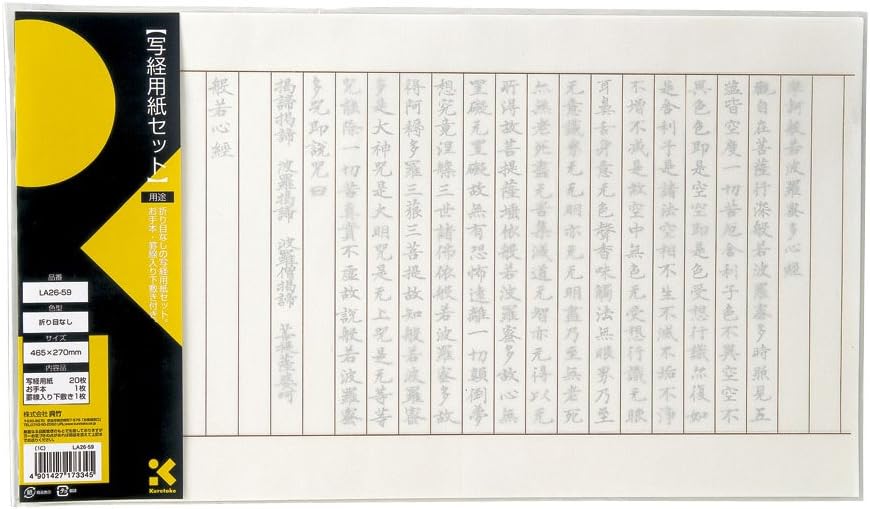 【写経用紙セット】
用途
折り目なしの写経用紙セット。
お手本・罫線入り下敷き付き。
品番
LA26-59
色型
折り目なし
サイズ
465×270mm
内容品
写経用紙 20枚
お手本 1枚
罫線入り下敷き 1枚
株式会社 呉竹
(1C) LA26-59
4 901427 173345
Kuretake
摩訶般若波羅蜜多心經
觀自在菩薩行深般若波羅蜜多時照見五
蘊皆空度一切苦厄舍利子色不異空空不
異色色即是空空即是色受想行識亦復如
是舍利子是諸法空相不生不滅不垢不淨
不增不減是故空中無色无受想行識无眼
耳鼻舌身意无色聲香味觸法無眼界乃至
无意識界无无明亦无无明盡乃至無老死
亦無老死盡无苦集滅道无智亦无得以无
所得故菩提薩埵依般若波羅蜜多故心無
罣礙无罣礙故無有恐怖遠離一切顛倒夢
想究竟涅槃三世諸佛依般若波羅蜜多故
得阿耨多羅三藐三菩提故知般若波羅蜜
多是大神咒是大明咒是无上咒是无等等
咒能除一切苦真實不虛故說般若波羅蜜
多咒即說咒曰
揭諦揭諦 波羅揭諦 波羅僧揭諦 菩提薩婆訶
般若心經